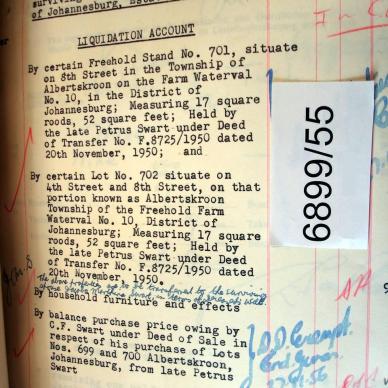 surviving
of Johannesburg,
LIQUIDATION ACCOUNT
By certain Freehold Stand No. 701, situate
on 8th Street in the Township of
Albertskroon on the Farm Waterval
No. 10, in the District of
Johannesburg; Measuring 17 square
roods, 52 square feet; Held by
the late Petrus Swart under Deed
of Transfer No. F.8725/1950 dated
20th November, 1950; and
By certain Lot No. 702 situate on
4th Street and 8th Street, on that
portion known as Albertskroon
Township of the Freehold Farm
Waterval No. 10, District of
Johannesburg; Measuring 17 square
roods, 52 square feet; Held by
the late Petrus Swart under Deed
of Transfer No. F.8725/1950 dated
20th November, 1950.
By household furniture and effects
By balance purchase price owing by
C.F. Swart under Deed of Sale in
respect of his purchase of Lots
Nos. 699 and 700 Albertskroon,
Johannesburg, from late Petrus
Swart
6899/55